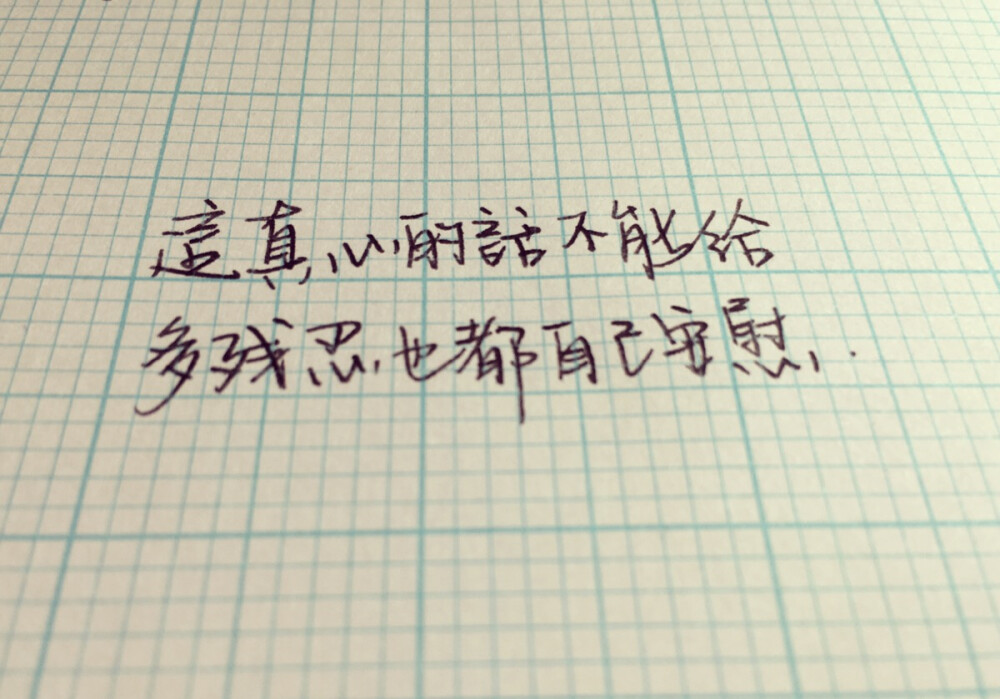 這真心的話不能給
多残忍也都自己安慰.